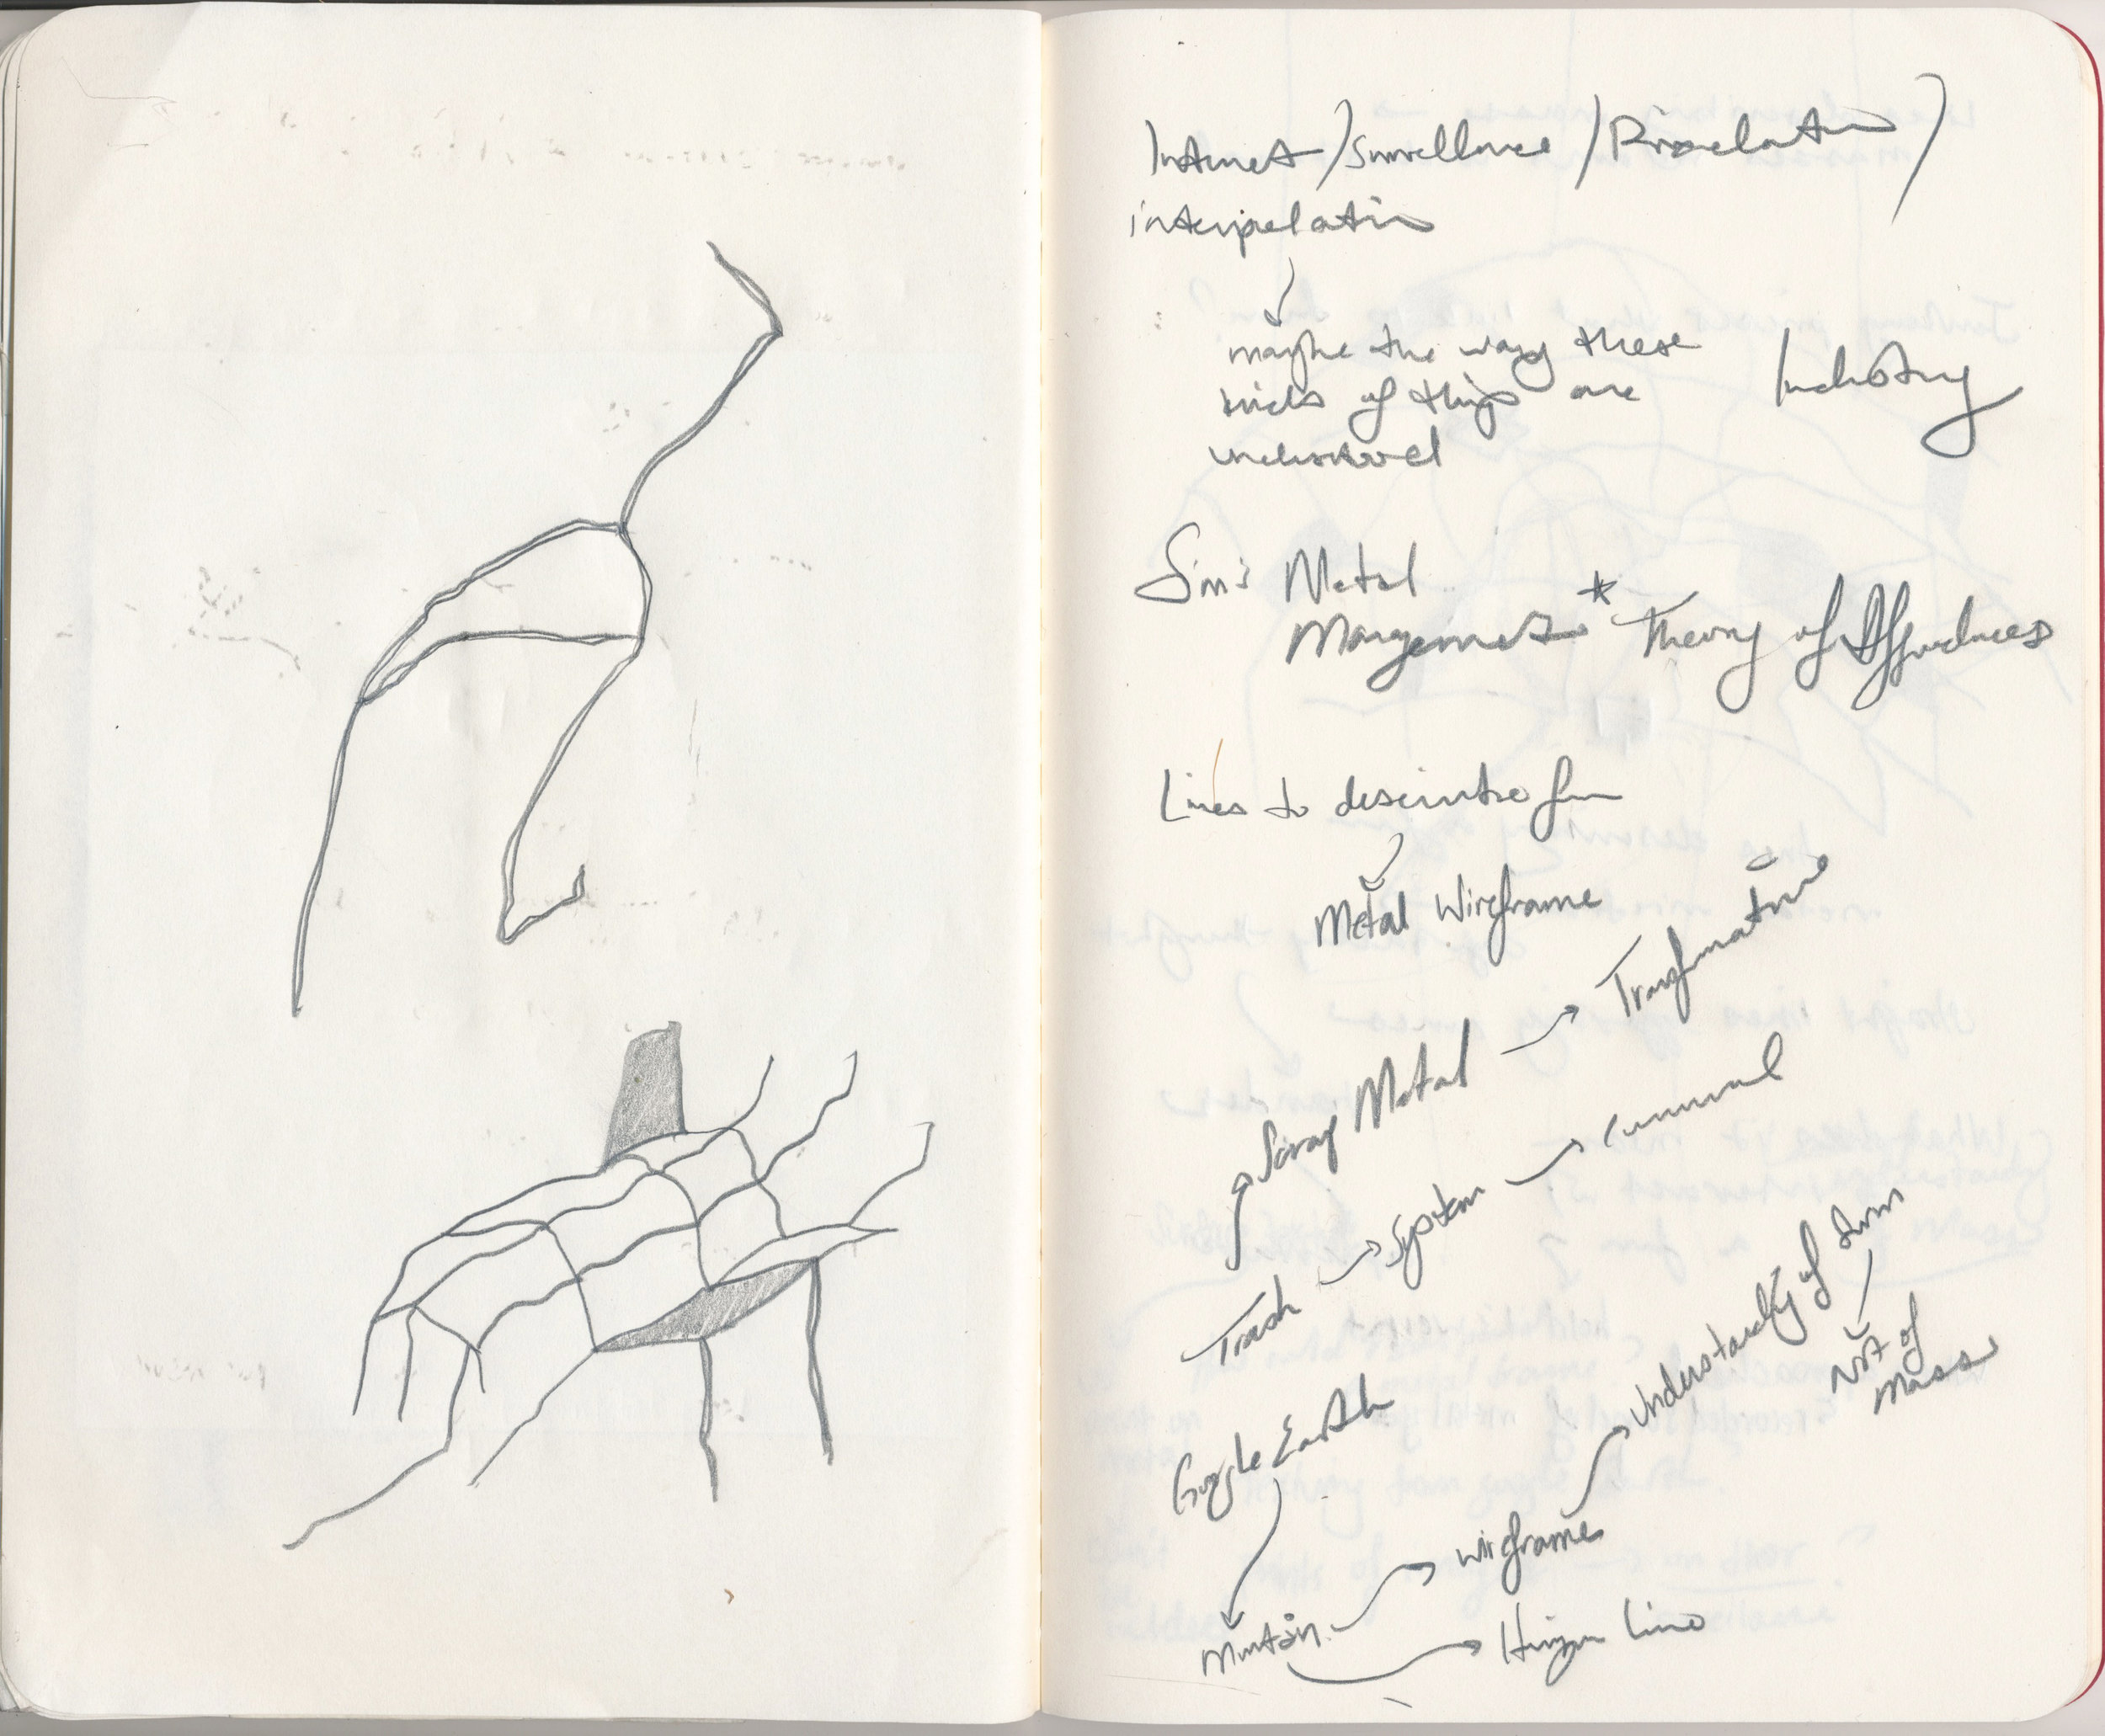 Internet / Surveillance / /
interpelation
maybe the way these
kinds of things are
understood
Industry
Sims Metal
Management * Theory of Affordances
Lines to describe form
Metal Wireframe
Scrap Metal → Transformation
Trash → System → communal
Google Earth
Understanding of form
Not of
mass
wireframe
Mountain
Horizon Line